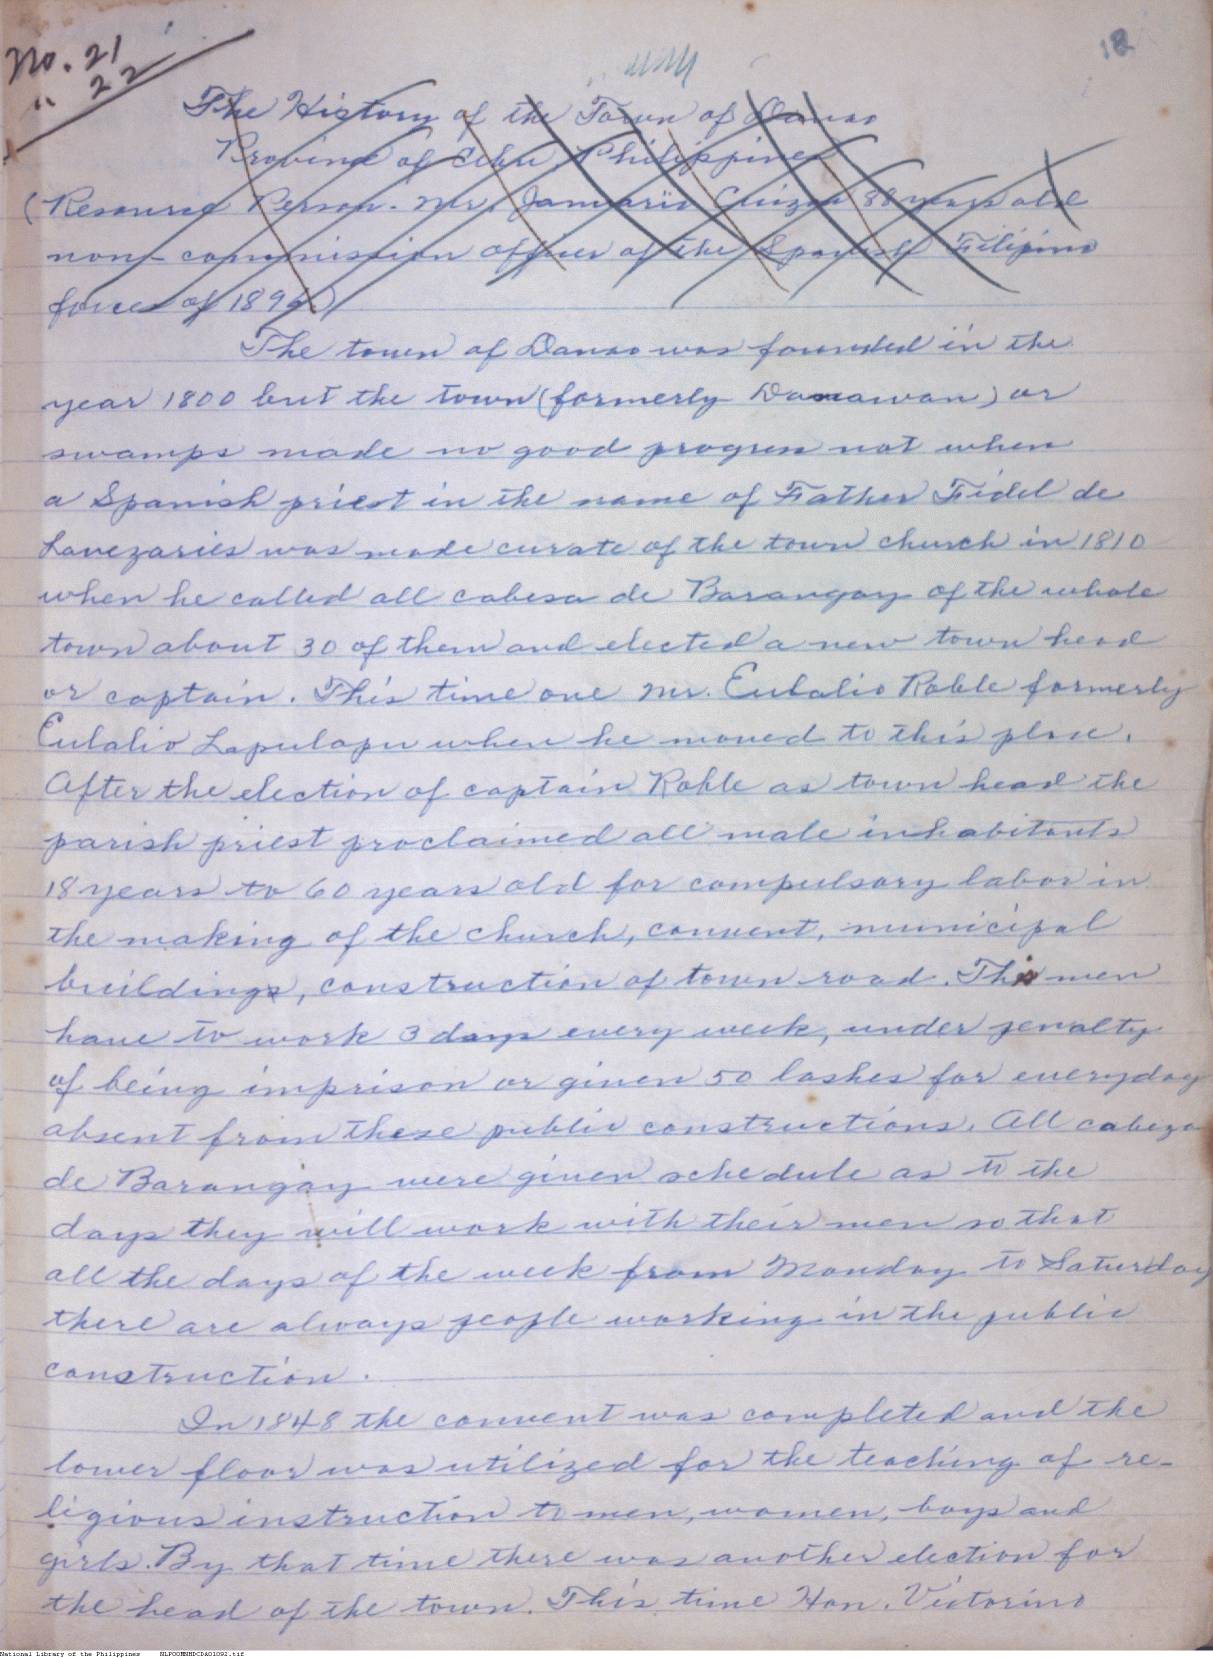 No. 21
" 22
18
The History of the Town of Danao
Province of Cebu, Philippines
(Resource Person - Mr. Januario 88 years old
non-commission officer of the Spanish Filipino
forces of 1896)
The town of Danao was founded in the
year 1800 but the town (formerly Danawan) or
swamps made no good progress not when
a Spanish priest in the name of Father Fidel de
Lavezaries was made curate of the town church in 1810
when he called all cabesa de Barangay of the whole
town about 30 of them and elected a new town head
or captain. This time one Mr. Eulalio Roble formerly
Eulalio Lapulapu when he moved to this place.
After the election of captain Roble as town head the
parish priest proclaimed all male inhabitants
18 years to 60 years old for compulsory labor in
the making of the church, convent, municipal
buildings, construction of town road. This men
have to work 3 days every week, under penalty
of being imprison or given 50 lashes for everyday
absent from these public constructions. All cabeza
de Barangay were given schedule as to the
days they will work with their men so that
all the days of the week from Monday to Saturday
there are always people working in the public
construction.
In 1848 the convent was completed and the
lower floor was utilized for the teaching of re-
ligious instruction to men, women, boys and
girls. By that time there was another election for
the head of the town. This time Hon. Victorino
National Library of the Philippines NLPOOMNHDCDA01092.tif